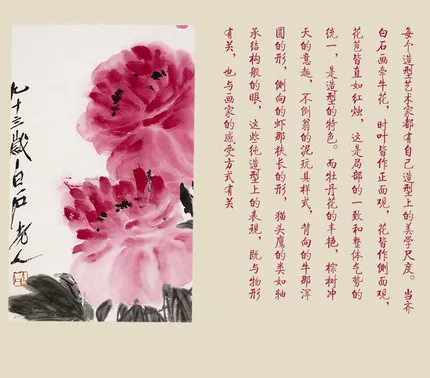 每个造型艺术家都有自己造型上的美学尺度。当齐
白石画牵牛花，时叶皆作正面观，花皆作侧面观，
花苞皆直如红烛，这是局部的一致和整体气势的
统一，是造型的特色。而牡丹花的丰艳，棕树冲
天的意趣，不倒翁的泥玩具样式，背向的牛那浑
圆的形，侧向的虾那狭长的形，猫头鹰的类如轴
承结构般的眼，这些纯造型上的表现，既与物形
有关，也与画家的感受方式有关
九十三岁白石老人